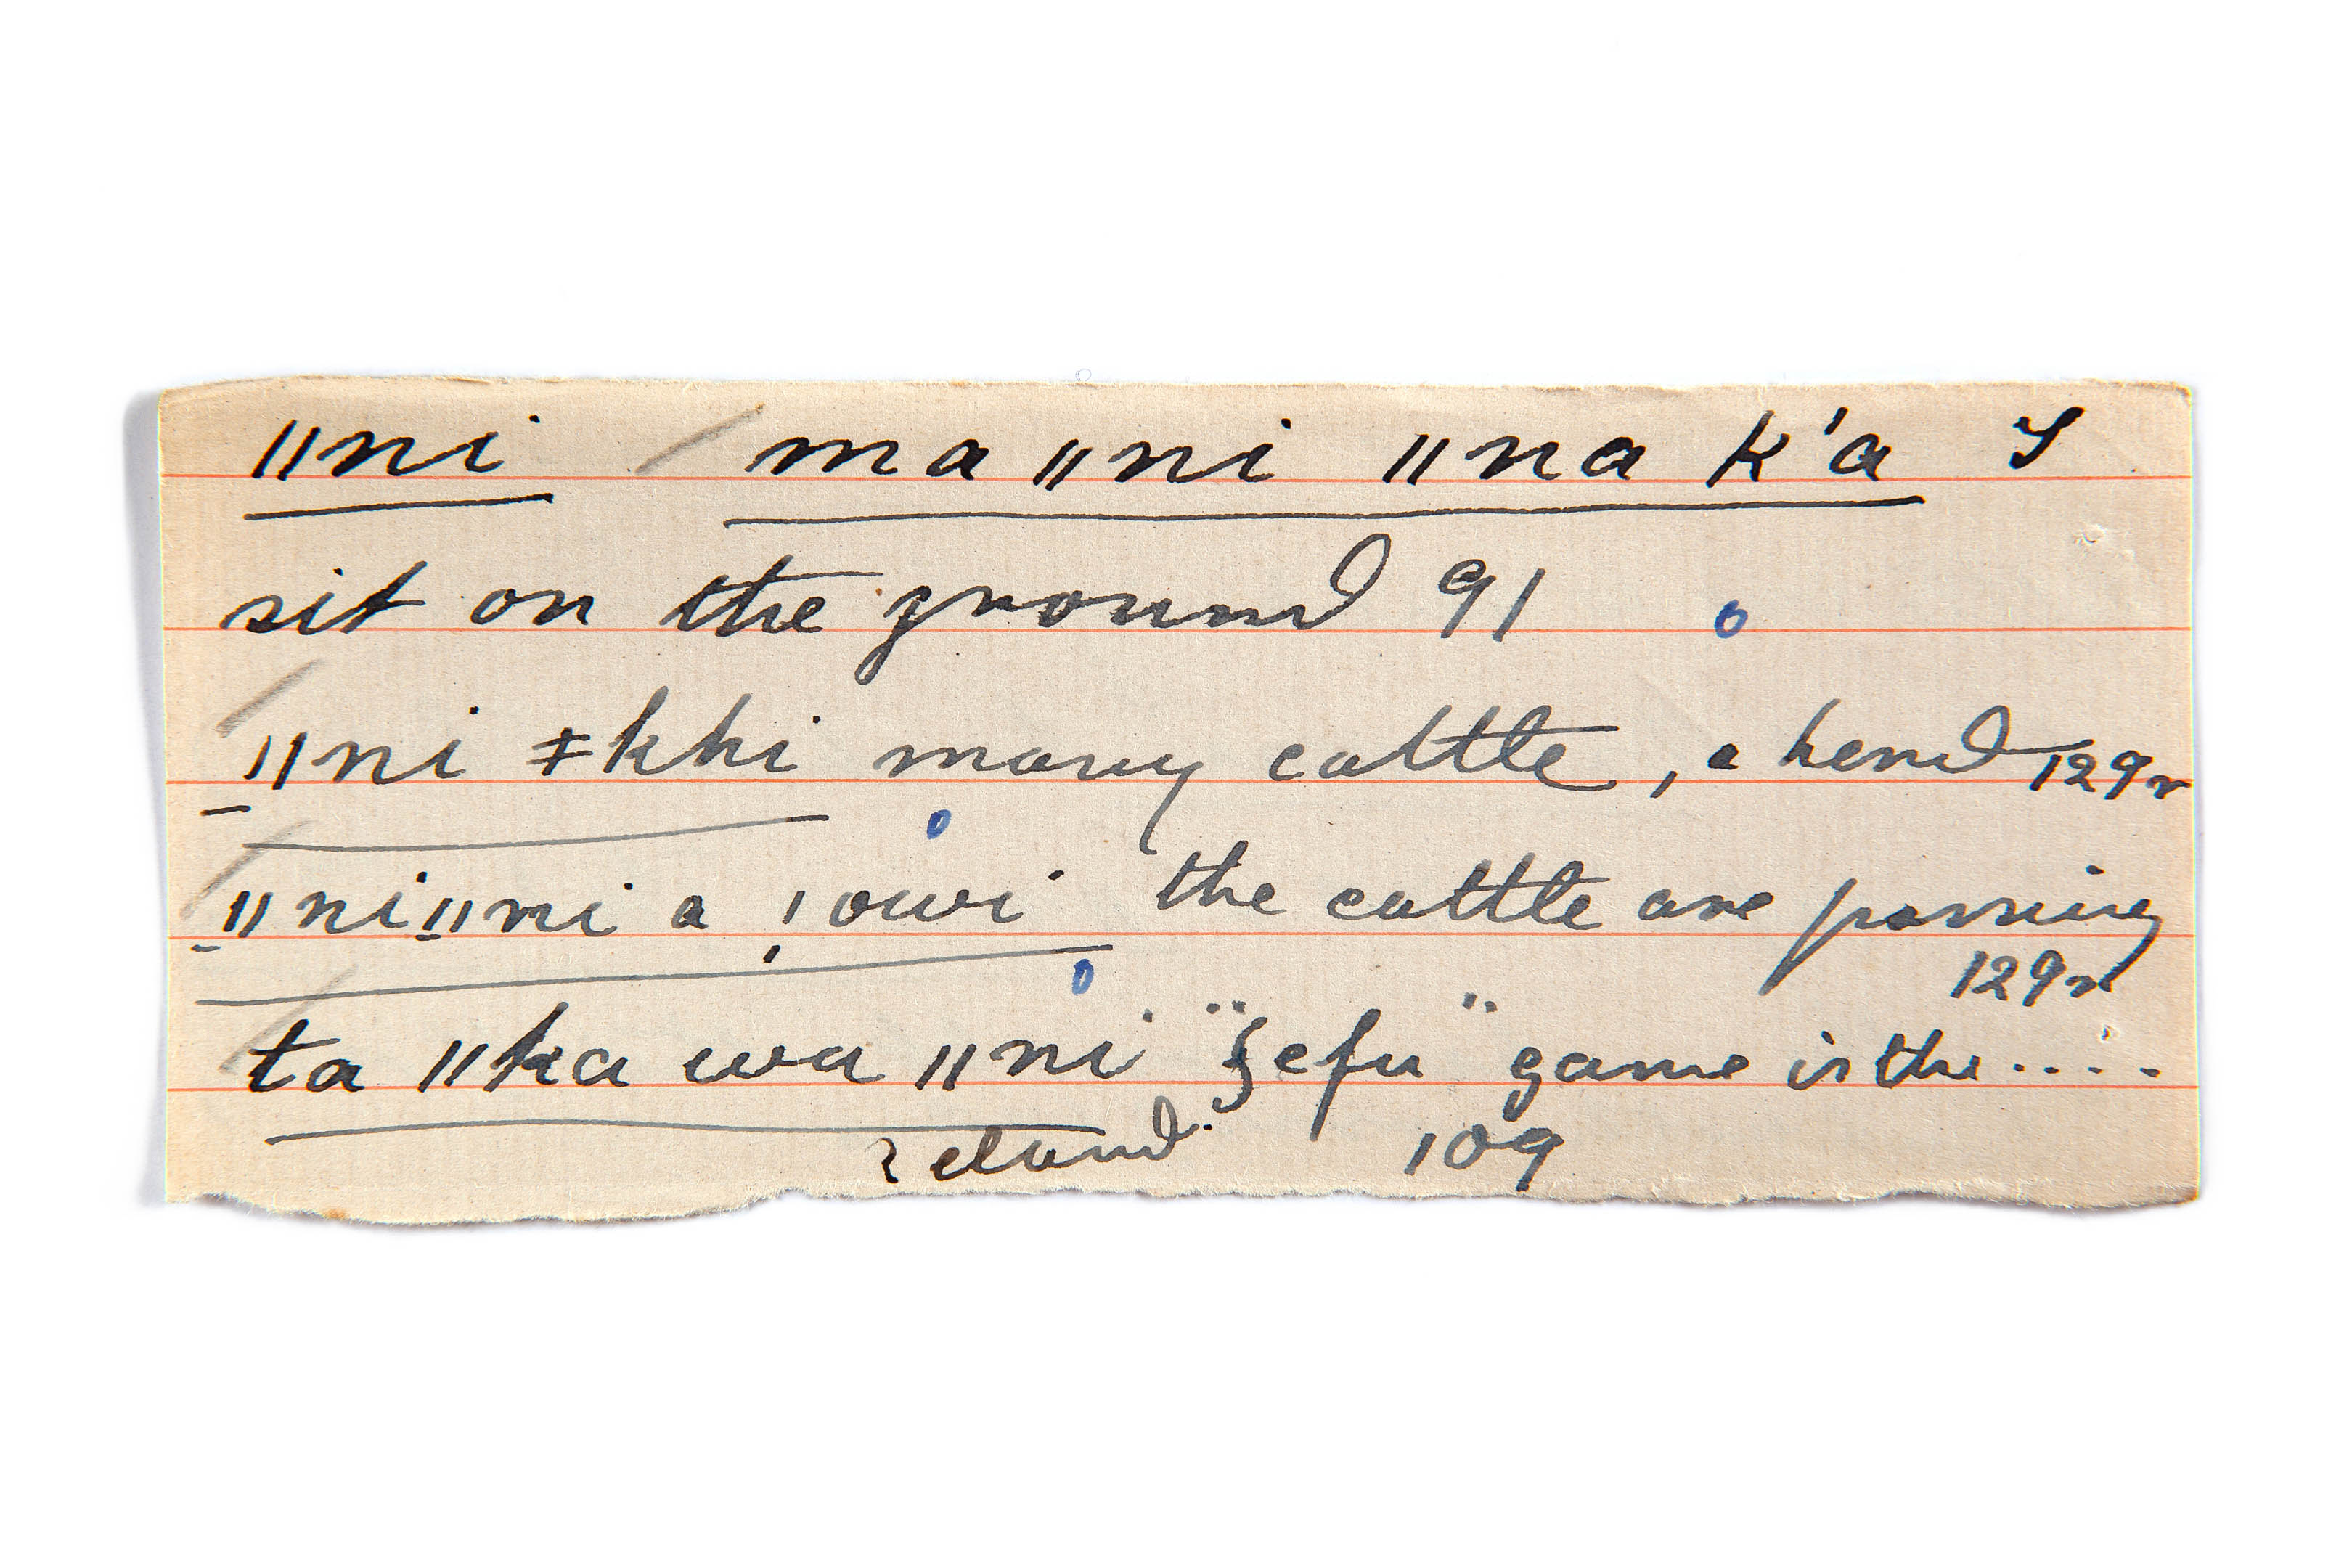 ǁni ma ǁni ǁna k'a
sit on the ground 91
ǁni ǂkhi many cattle, a herd 129r
ǁniǁni a ǃowi the cattle are passing
129r
ta ǁka wa ǁni "ʒefu" game is the....
eland. 109